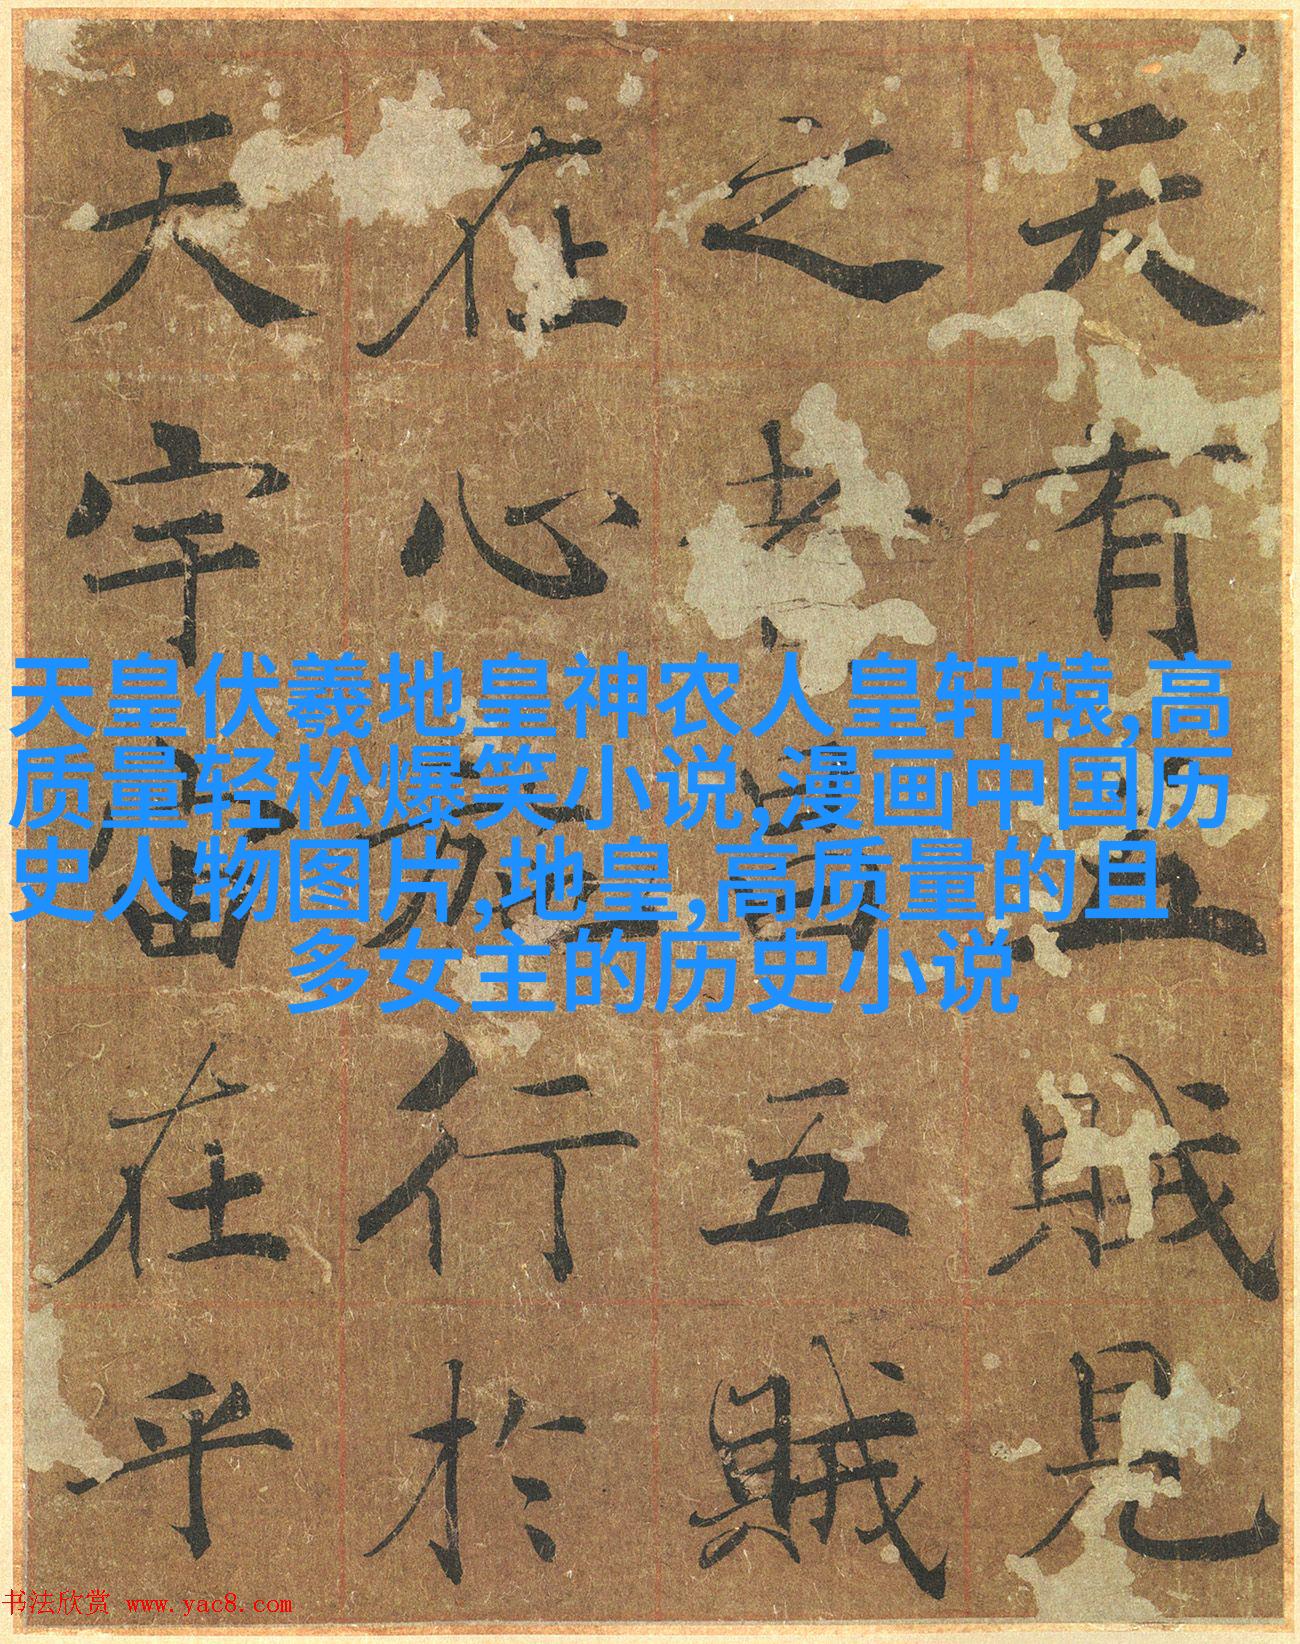 天有五賊見
之者昌五賊
在心施行於
天宇宙在乎
天皇伏羲地皇神农人皇轩辕,高
质量轻松爆笑小说,漫画中国历
史人物图片,地皇,高质量的且
多女主的历史小说
书法欣赏 www.yac8.com